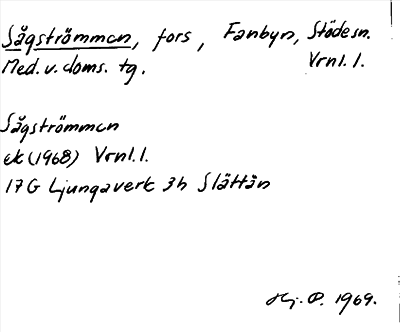 Sågströmmen, fors, Fanbyn, Stödesn.
Med. v. doms. tg. Vrnl. l.
Sågströmmen
ek (1968) Vrnl. l.
17G Ljungaverk 3h Slättån
Hj. P. 1969.